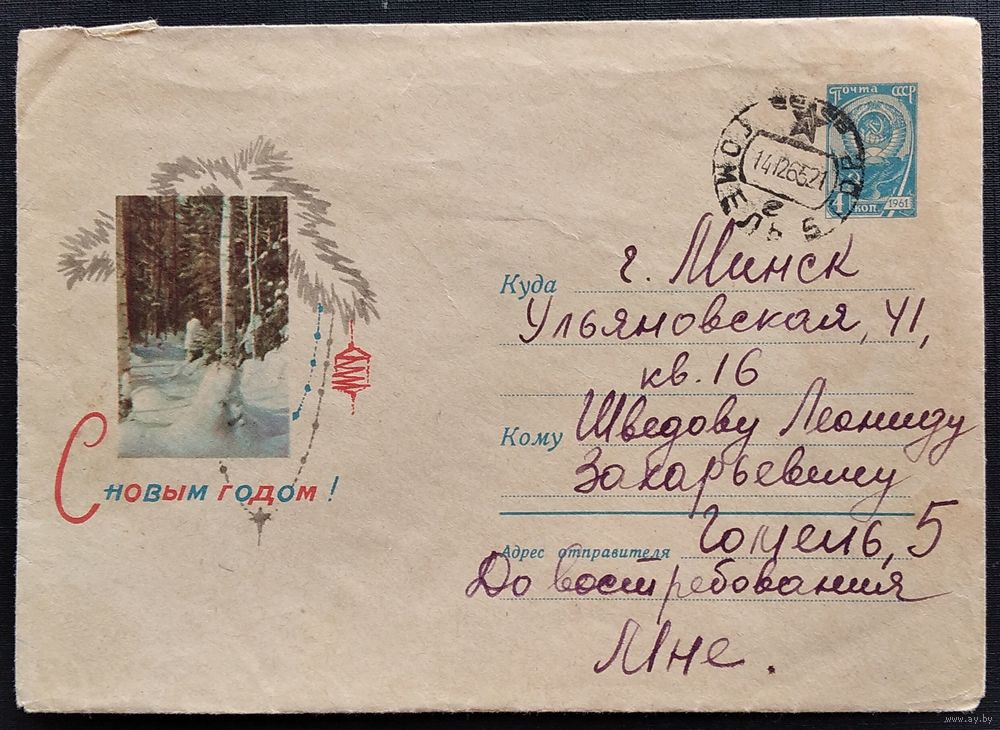 Почта СССР
4 коп 1961
ГОМЕЛЬ
14126521
Куда г. Минск
Ульяновская, 41,
кв. 16
Кому Шведову Леониду
Захарьевичу
Адрес отправителя Гомель, 5
До востребования
Мне.
С новым годом!
www.ay.by